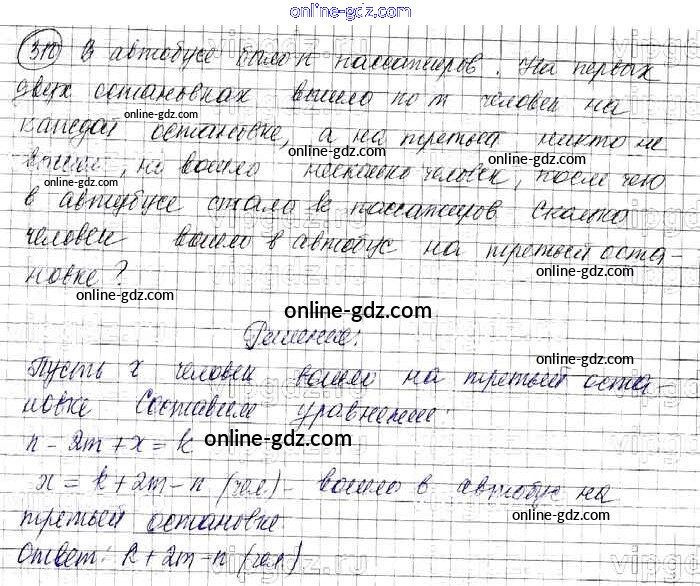 online-gdz.com
310 В автобусе было n пассажиров. На первых
двух остановках вышло по m человек на
каждой остановке, а на третьей никто не
вышел, но вошло несколько человек, после чего
в автобусе стало k пассажиров. Сколько
человек вошло в автобус на третьей оста-
новке?
online-gdz.com
Решение:
Пусть x человек вошло на третьей оста-
новке Составим уравнение:
n - 2m + x = k
online-gdz.com
x = k + 2m - n (чел) - вошло в автобус на
третьей остановке.
Ответ: k + 2m - n (чел)